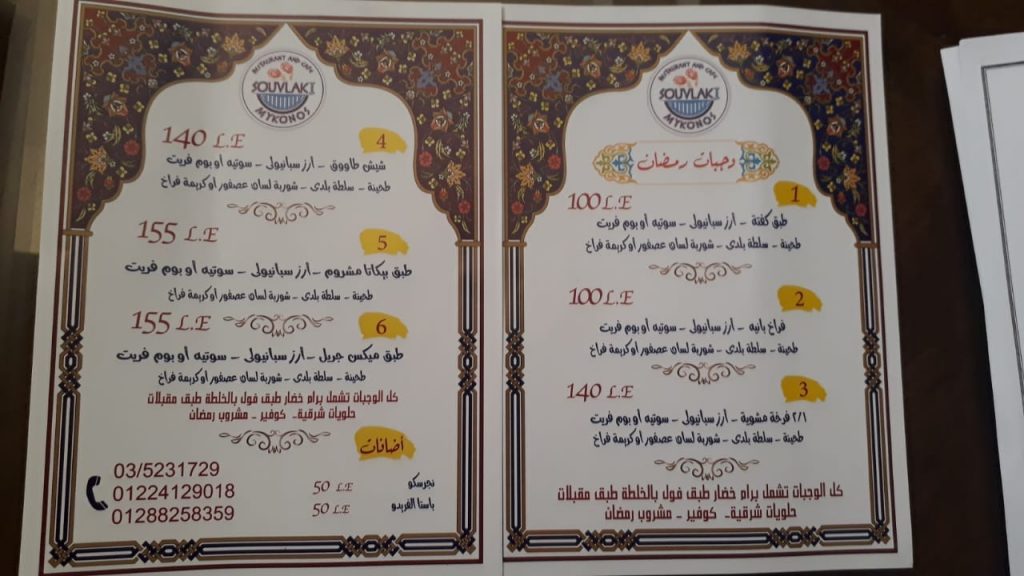 RESTAURANT AND CAFE
SOUVLAKI
MYKONOS
وجبات رمضان
1
100 L.E
طبق كفتة – أرز سبانيول – سوتيه أو بوم فريت
طحينة – سلطة بلدى – شوربة لسان عصفور أو كريمة فراخ
2
100 L.E
فراخ بانيه – أرز سبانيول – سوتيه أو بوم فريت
طحينة – سلطة بلدى – شوربة لسان عصفور أو كريمة فراخ
3
140 L.E
٢/١ فرخة مشوية – أرز سبانيول – سوتيه أو بوم فريت
طحينة – سلطة بلدى – شوربة لسان عصفور أو كريمة فراخ
كل الوجبات تشمل برام خضار طبق فول بالخلطة طبق مقبلات
حلويات شرقية– كوفير – مشروب رمضان
RESTAURANT AND CAFE
SOUVLAKI
MYKONOS
4
140 L.E
شيش طاووق – أرز سبانيول – سوتيه أو بوم فريت
طحينة – سلطة بلدى – شوربة لسان عصفور أو كريمة فراخ
5
155 L.E
طبق بيكاتا مشروم – أرز سبانيول – سوتيه أو بوم فريت
طحينة – سلطة بلدى – شوربة لسان عصفور أو كريمة فراخ
6
155 L.E
طبق ميكس جريل – أرز سبانيول – سوتيه أو بوم فريت
طحينة – سلطة بلدى – شوربة لسان عصفور أو كريمة فراخ
كل الوجبات تشمل برام خضار طبق فول بالخلطة طبق مقبلات
حلويات شرقية – كوفير – مشروب رمضان
أضافات
نجرسكو 50 L.E
باستا الفريدو 50 L.E
03/5231729
01224129018
01288258359